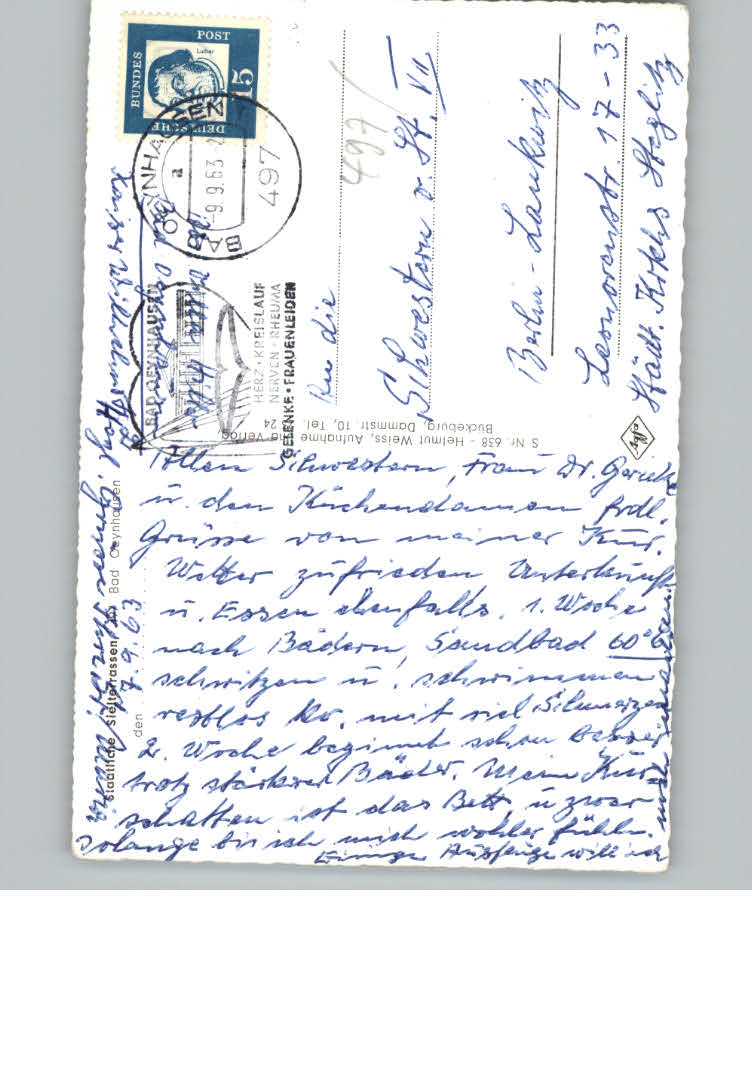 Staatliche Sielterrassen Bad Oeynhausen
den 7.9.63
Allen Schwestern, Frau Dr.
u. den Küchendamen frdl.
Grüsse von meiner Kur.
Wetter zufrieden Unterkunft
u. Essen ebenfalls. 1. Woche
nach Bädern, Sandbad 60°
schwitzen u. schwimmen
restlos kv. mit viel Schmerzen
2. Woche beginnt schon besser
trotz stärkerer Bäder. Mein Kur-
schatten ist das Bett, u zwar
solange bis ich mich wohler fühle.
Einige Ausflüge will ich
Herzl. Grüsse
An die
Schwestern v. St. VII
Berlin-Lankwitz
Leonorenstr. 17-33
Städt. Krkhs Steglitz
497
Bad Oeynhausen
Kaiser Wilhelm
DEUTSCHE
BUNDES
POST
Luther
15
BAD OEYNHAUSEN
a
-9.9.63
497
BAD OEYNHAUSEN
HERZ·KREISLAUF
NERVEN·RHEUMA
GELENKE·FRAUENLEIDEN
S Nr. 638 - Helmut Weiss, Aufnahme und Verlag
Bückeburg, Dammstr. 10, Tel. 24
Agfa